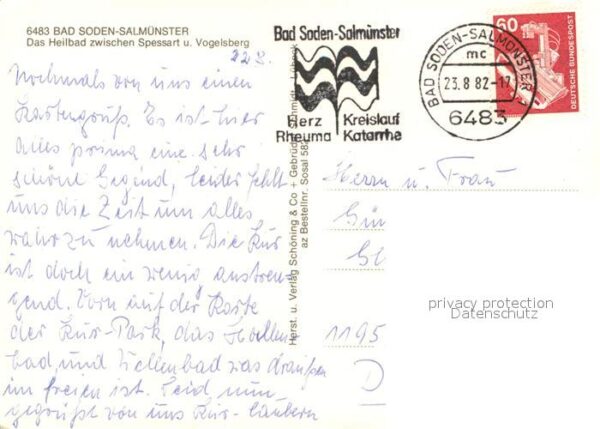 6483 BAD SODEN-SALMÜNSTER
Das Heilbad zwischen Spessart u. Vogelsberg
22 8.
Nochmals von uns einen
Kartengruß. Es ist hier
alles prima eine sehr
schöne Gegend, leider fehlt
uns die Zeit um alles
wahr zu nehmen. Die Kur
ist doch ein wenig anstren-
gend. Vorn auf der Karte
der Kur-Park, das Hallen
bad und Wellenbad was draußen
im freien ist. Seid nun
gegrüßt von uns Kur-
Herst. u. Verlag Schöning & Co + Gebrüder Schmidt, Lübeck
az Bestellnr. Sosal 582
Bad Soden-Salmünster
Herz Kreislauf
Rheuma Katarrhe
BAD SODEN-SALMÜNSTER 1
mc
23.8.82-17
6483
60
DEUTSCHE BUNDESPOST
Herrn u. Frau
Gün
1195
D
privacy protection
Datenschutz